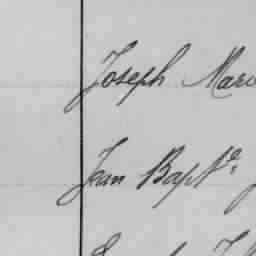 Joseph Mari
Jean Bapte